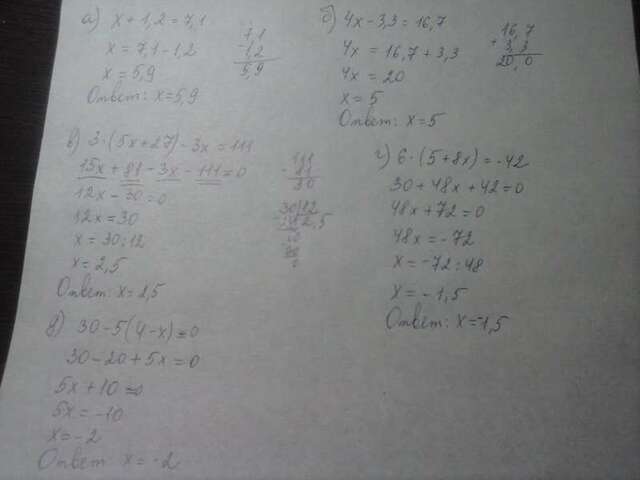 а) x + 1,2 = 7,1
x = 7,1 - 1,2
x = 5,9
Ответ: x = 5,9
7,1
- 1,2
5,9
б) 4x - 3,3 = 16,7
4x = 16,7 + 3,3
4x = 20
x = 5
Ответ: x = 5
16,7
+ 3,3
20,0
в) 3 · (5x + 27) - 3x = 111
15x + 81 - 3x - 111 = 0
12x - 30 = 0
12x = 30
x = 30 : 12
x = 2,5
Ответ: x = 2,5
111
- 81
30
30 12
2,5
г) 6 · (5 + 8x) = -42
30 + 48x + 42 = 0
48x + 72 = 0
48x = -72
x = -72 : 48
x = -1,5
Ответ: x = -1,5
д) 30 - 5(4 - x) = 0
30 - 20 + 5x = 0
5x + 10 = 0
5x = -10
x = -2
Ответ: x = -2